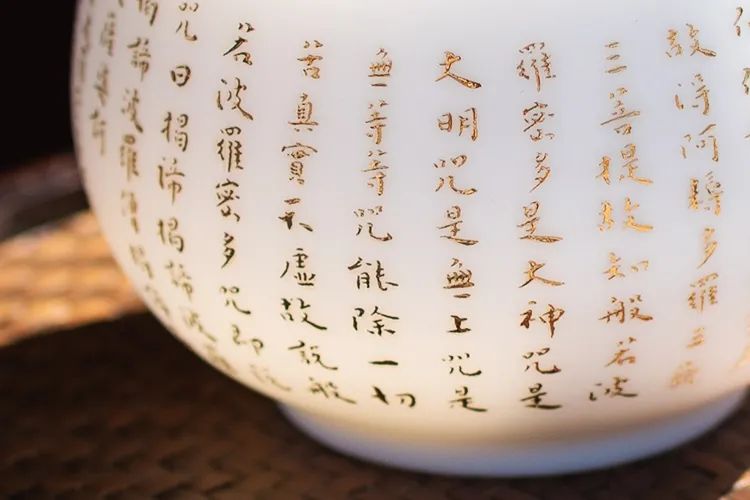 故得阿耨多羅三藐
三菩提故知般若波
羅密多是大神咒是
大明咒是無上咒是
無等等咒能除一切
苦真實不虛故說般
若波羅密多咒即說
咒曰揭諦揭諦波
揭諦波羅僧揭
薩婆訶